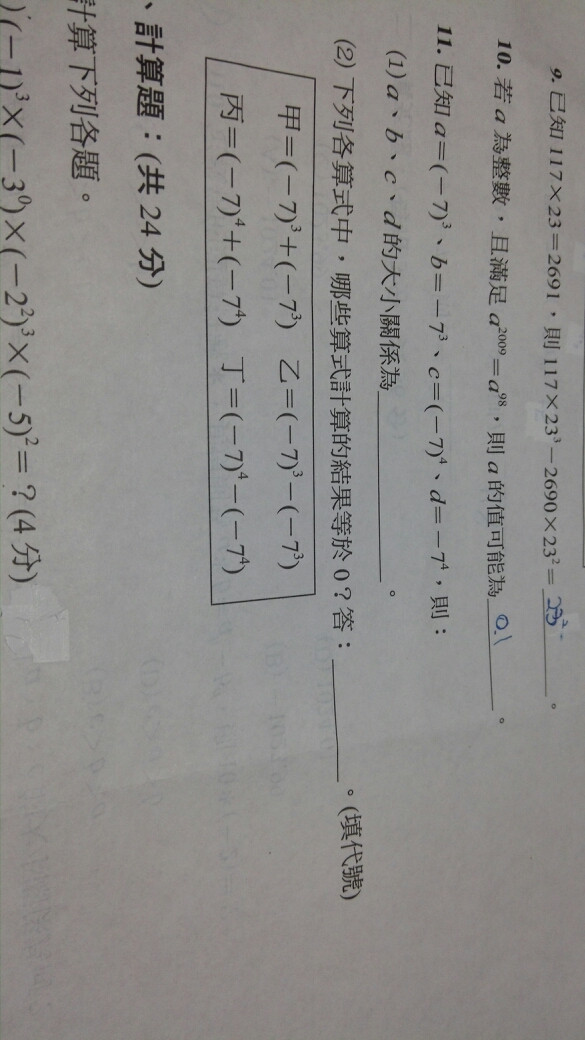 9. 已知 117×23=2691，則 117×23³－2690×23²= 23² 。
10. 若 a 為整數，且滿足 a²⁰⁰⁹=a⁹⁸，則 a 的值可能為 0.1 。
11. 已知 a=(－7)³、b=－7³、c=(－7)⁴、d=－7⁴，則：
(1) a、b、c、d 的大小關係為 。
(2) 下列各算式中，哪些算式計算的結果等於 0？答： 。(填代號)
甲=(－7)³+(－7³) 乙=(－7)³－(－7³)
丙=(－7)⁴+(－7⁴) 丁=(－7)⁴－(－7⁴)
、計算題：(共 24 分)
計算下列各題。
)(－1)³×(－3⁰)×(－2²)³×(－5)²=？(4 分)